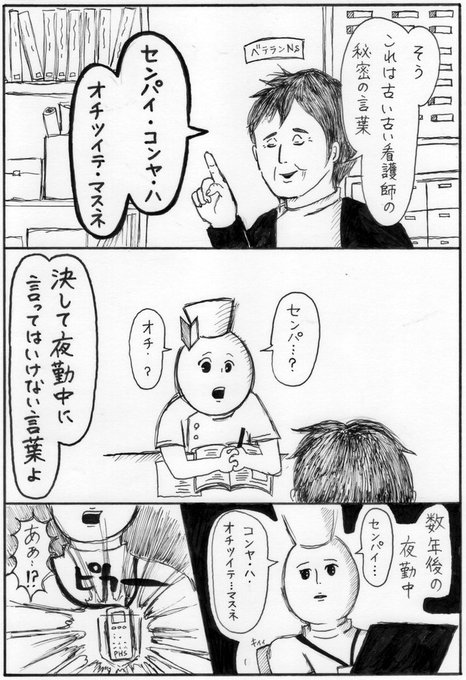 そう
これは古い古い看護師の
秘密の言葉
ベテランNS
センパイ・コンヤ・ハ
オチツイテ・マスネ
センパ…?
オチ・?
決して夜勤中に
言ってはいけない言葉よ
数年後の
夜勤中
センパイ…
コンヤ・ハ…
オチツイテ…マスネ
キィィ
ピカー
あぁ…!?
PHS